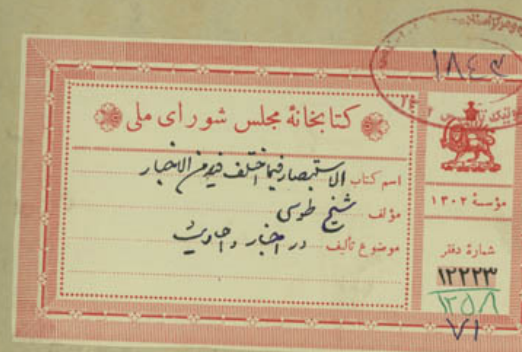 ۱۸۴۴
کتابخانه مجلس شورای ملی
اسم کتاب الاستبصار فیما اختلف فیه من الاخبار
مؤلف شیخ طوسی
موضوع تألیف در اخبار و احادیث
مؤسسهٔ ۱۳۰۲
شمارهٔ دفتر
۱۲۲۲۳
۷۱